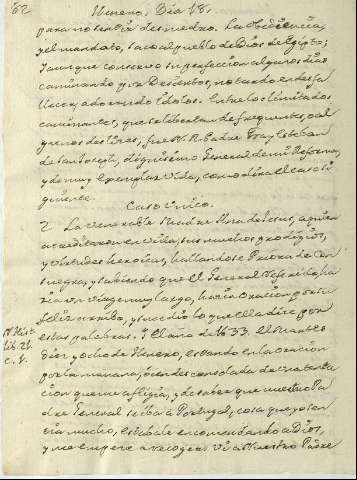 62 Henero, Dia 18.
para no sentir desmedro. La Obediencia,
y el mandato, saco al pueblo de Dios de Egipto;
y aunque conservo su perfeccion algunos dias
caminando por Desiertos, no tardo en desfa
llecer, adorando Idolos. Entre los limitados
caminantes, que se libertan de frequentes, al
gunos deslices, fue N. R. Padre Fray Esteban
de San Joseph, dignisimo General de mi Reforma,
y de muy exemplar vida, como dira el caso si
guiente.
Caso Unico.
2 La Venerable Madre Ana de Jesus, a quien
acreditaron en vida, sus muchos prodigios,
y virtudes heroicas, hallandose Priora de Con
suegra, y sabiendo que el General referido, ha
cia un viage muy largo, hacia oracion por su
feliz arribo, y sucedio lo que ella dice por
estas palabras. Y el año de 1633. el Martes
Diez y ocho de Henero, estando en la oracion
por la mañana, bien desconsolada de una tenta
cion que me afligia, y de saber que nuestro Pa
dre General se iba a Portugal, cosa que yo sen
tia mucho, estabale encomendando a Dios,
y me empece a recoger, vi a Nuestro Padre
N. Hist.
lib. 21.
c. 4.